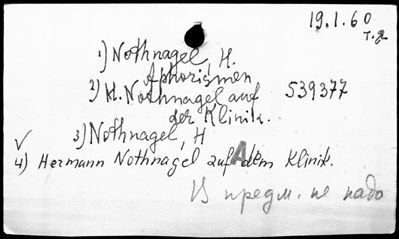 19.1.60
т.д.
1) Nothnagel, H.
Aphorismen
2) H. Nothnagel auf 539377
der Klinik.
3) Nothnagel, H
✓
4) Hermann Nothnagel auf dem Klinik.
В предм. не надо